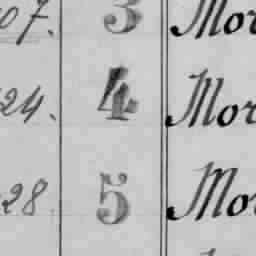 07. 3 Mor
24. 4 Mor
28. 5 Mor